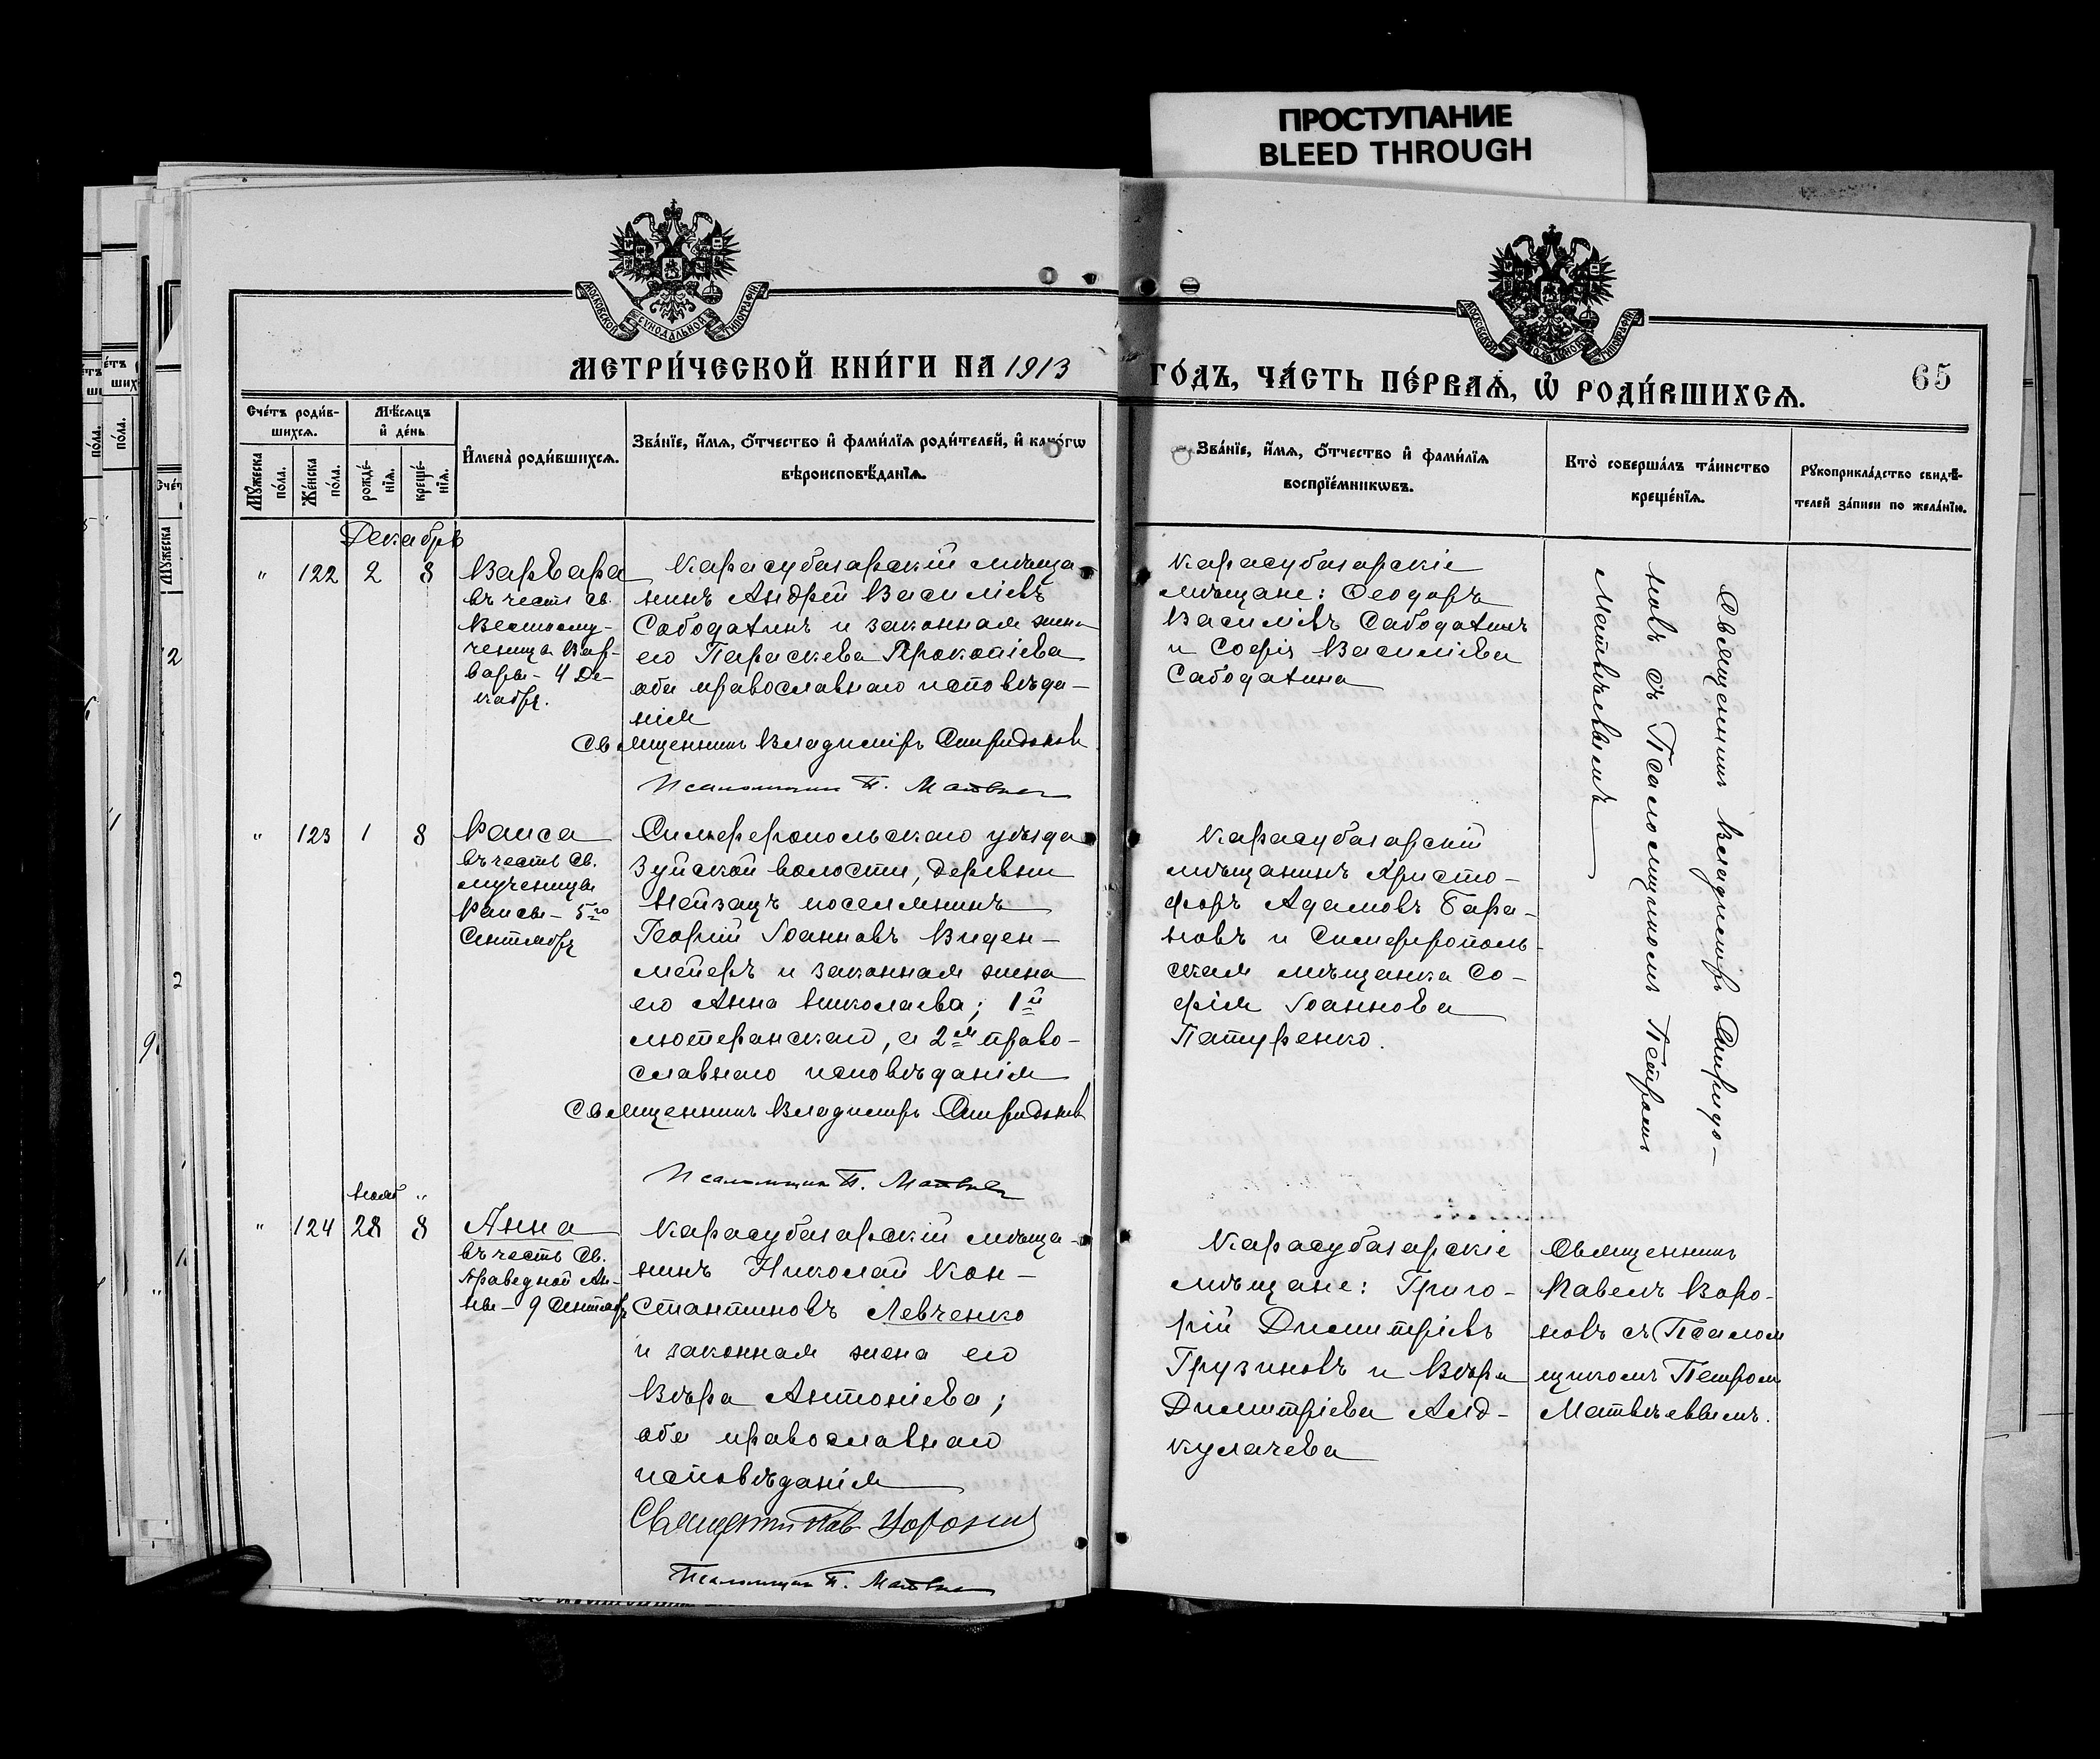 ПРОСТУПАНИЕ
BLEED THROUGH
МОСКОВСКОЙ СУНОДАЛЬНОЙ ТИПОГРАФІИ
МОСКОВСКОЙ СУНОДАЛЬНОЙ ТИПОГРАФІИ
МЕТРИ́ЧЕСКОЙ КНИ́ГИ НА 1913
ГО́ДЪ, ЧА́СТЬ ПЕ́РВАѦ, Ѡ҆ РОДИ́ВШИХСѦ.
65
Сче́тъ роди́в-
шихсѧ.
Мѣ́сяцъ
и҆ де́нь
И҆мена̀ роди́вшихсѧ.
Зва́нїе, и҆́мѧ, ѻ҆́тчество и҆ фами́лїѧ роди́телей, и҆ како́гѡ
вѣроисповѣ́данїѧ.
Мꙋ́жеска
по́ла.
Же́нска
пола.
рожде́-
нїѧ.
креще́-
нїѧ.
Зва́нїе, и҆́мѧ, ѻ҆́тчество и҆ фами́лїѧ
воспрїе́мникѡвъ.
Кто̀ соверша́лъ та́инство
креще́нїѧ.
Рꙋкоприкла́дство свидѣ́-
телей за́писи по жела́нїю.
Декабрь
" 122 2 8
Варвара
въ честь Св.
Великому-
ченицы Вар-
вары - 4 Де-
кабря.
Карасубазарскій мѣща-
нинъ Андрей Василіевъ
Сободатинъ и законная жена
его Параскева Прокопіева
оба православнаго исповѣда-
нія
Священникъ Владиміръ Спиридоновъ
Псаломщикъ П. Матвѣев
Карасубазарскіе
мѣщане: Ѳеодоръ
Василіевъ Сабодатинъ
и Софія Василіева
Сабодатина
Священникъ Владиміръ Спиридо-
новъ съ Псаломщикомъ Петромъ
Матвѣевымъ
" 123 1 8
Раиса
въ честь Св.
мученицы
Раисы - 5го
Сентября
Симферопольскаго уѣзда
Зуйской волости, деревни
Нейзацъ поселянинъ
Георгій Іоанновъ Виден-
мейеръ и законная жена
его Анна Николаева; 1й
лютеранскаго, а 2я право-
славнаго исповѣданія
Священникъ Владиміръ Спиридоновъ
Псаломщикъ П. Матвѣев
Карасубазарскій
мѣщанинъ Христо-
форъ Адамовъ Бара-
новъ и Симферополь-
ская мѣщанка Со-
фія Іоаннова
Патуренко.
Нояб "
" 124 28 8
Анна
въ честь Св.
Праведной Ан-
ны - 9 Сентябр
Карасубазарскій мѣща-
нинъ Николай Кон-
стантиновъ Левченко
и законная жена его
Вѣра Антоніева;
оба православнаго
исповѣданія
Священник Пав. Воронов
Псаломщикъ П. Матвѣев
Карасубазарскіе
мѣщане: Григо-
рій Димитріевъ
Грузиновъ и Вѣра
Димитріева
кулачева
Священникъ
Павелъ Воро-
новъ съ Псалом
щикомъ Петромъ
Матвѣевымъ.